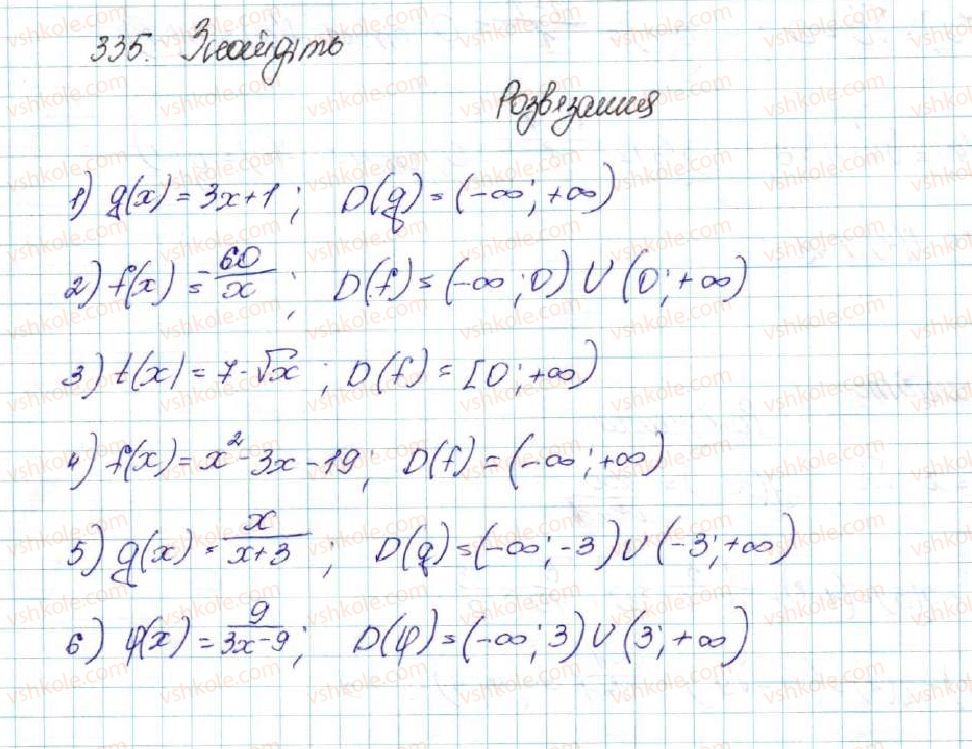 335. Знайдіть
Розв'язання
1) g(x) = 3x+1; D(g) = (-∞; +∞)
2) f(x) = 60/x; D(f) = (-∞; 0) ∪ (0; +∞)
3) t(x) = 7 - √x; D(f) = [0; +∞)
4) f(x) = x² - 3x - 19; D(f) = (-∞; +∞)
5) g(x) = x/(x+3); D(g) = (-∞; -3) ∪ (-3; +∞)
6) φ(x) = 9/(3x-9); D(φ) = (-∞; 3) ∪ (3; +∞)
vshkole.com